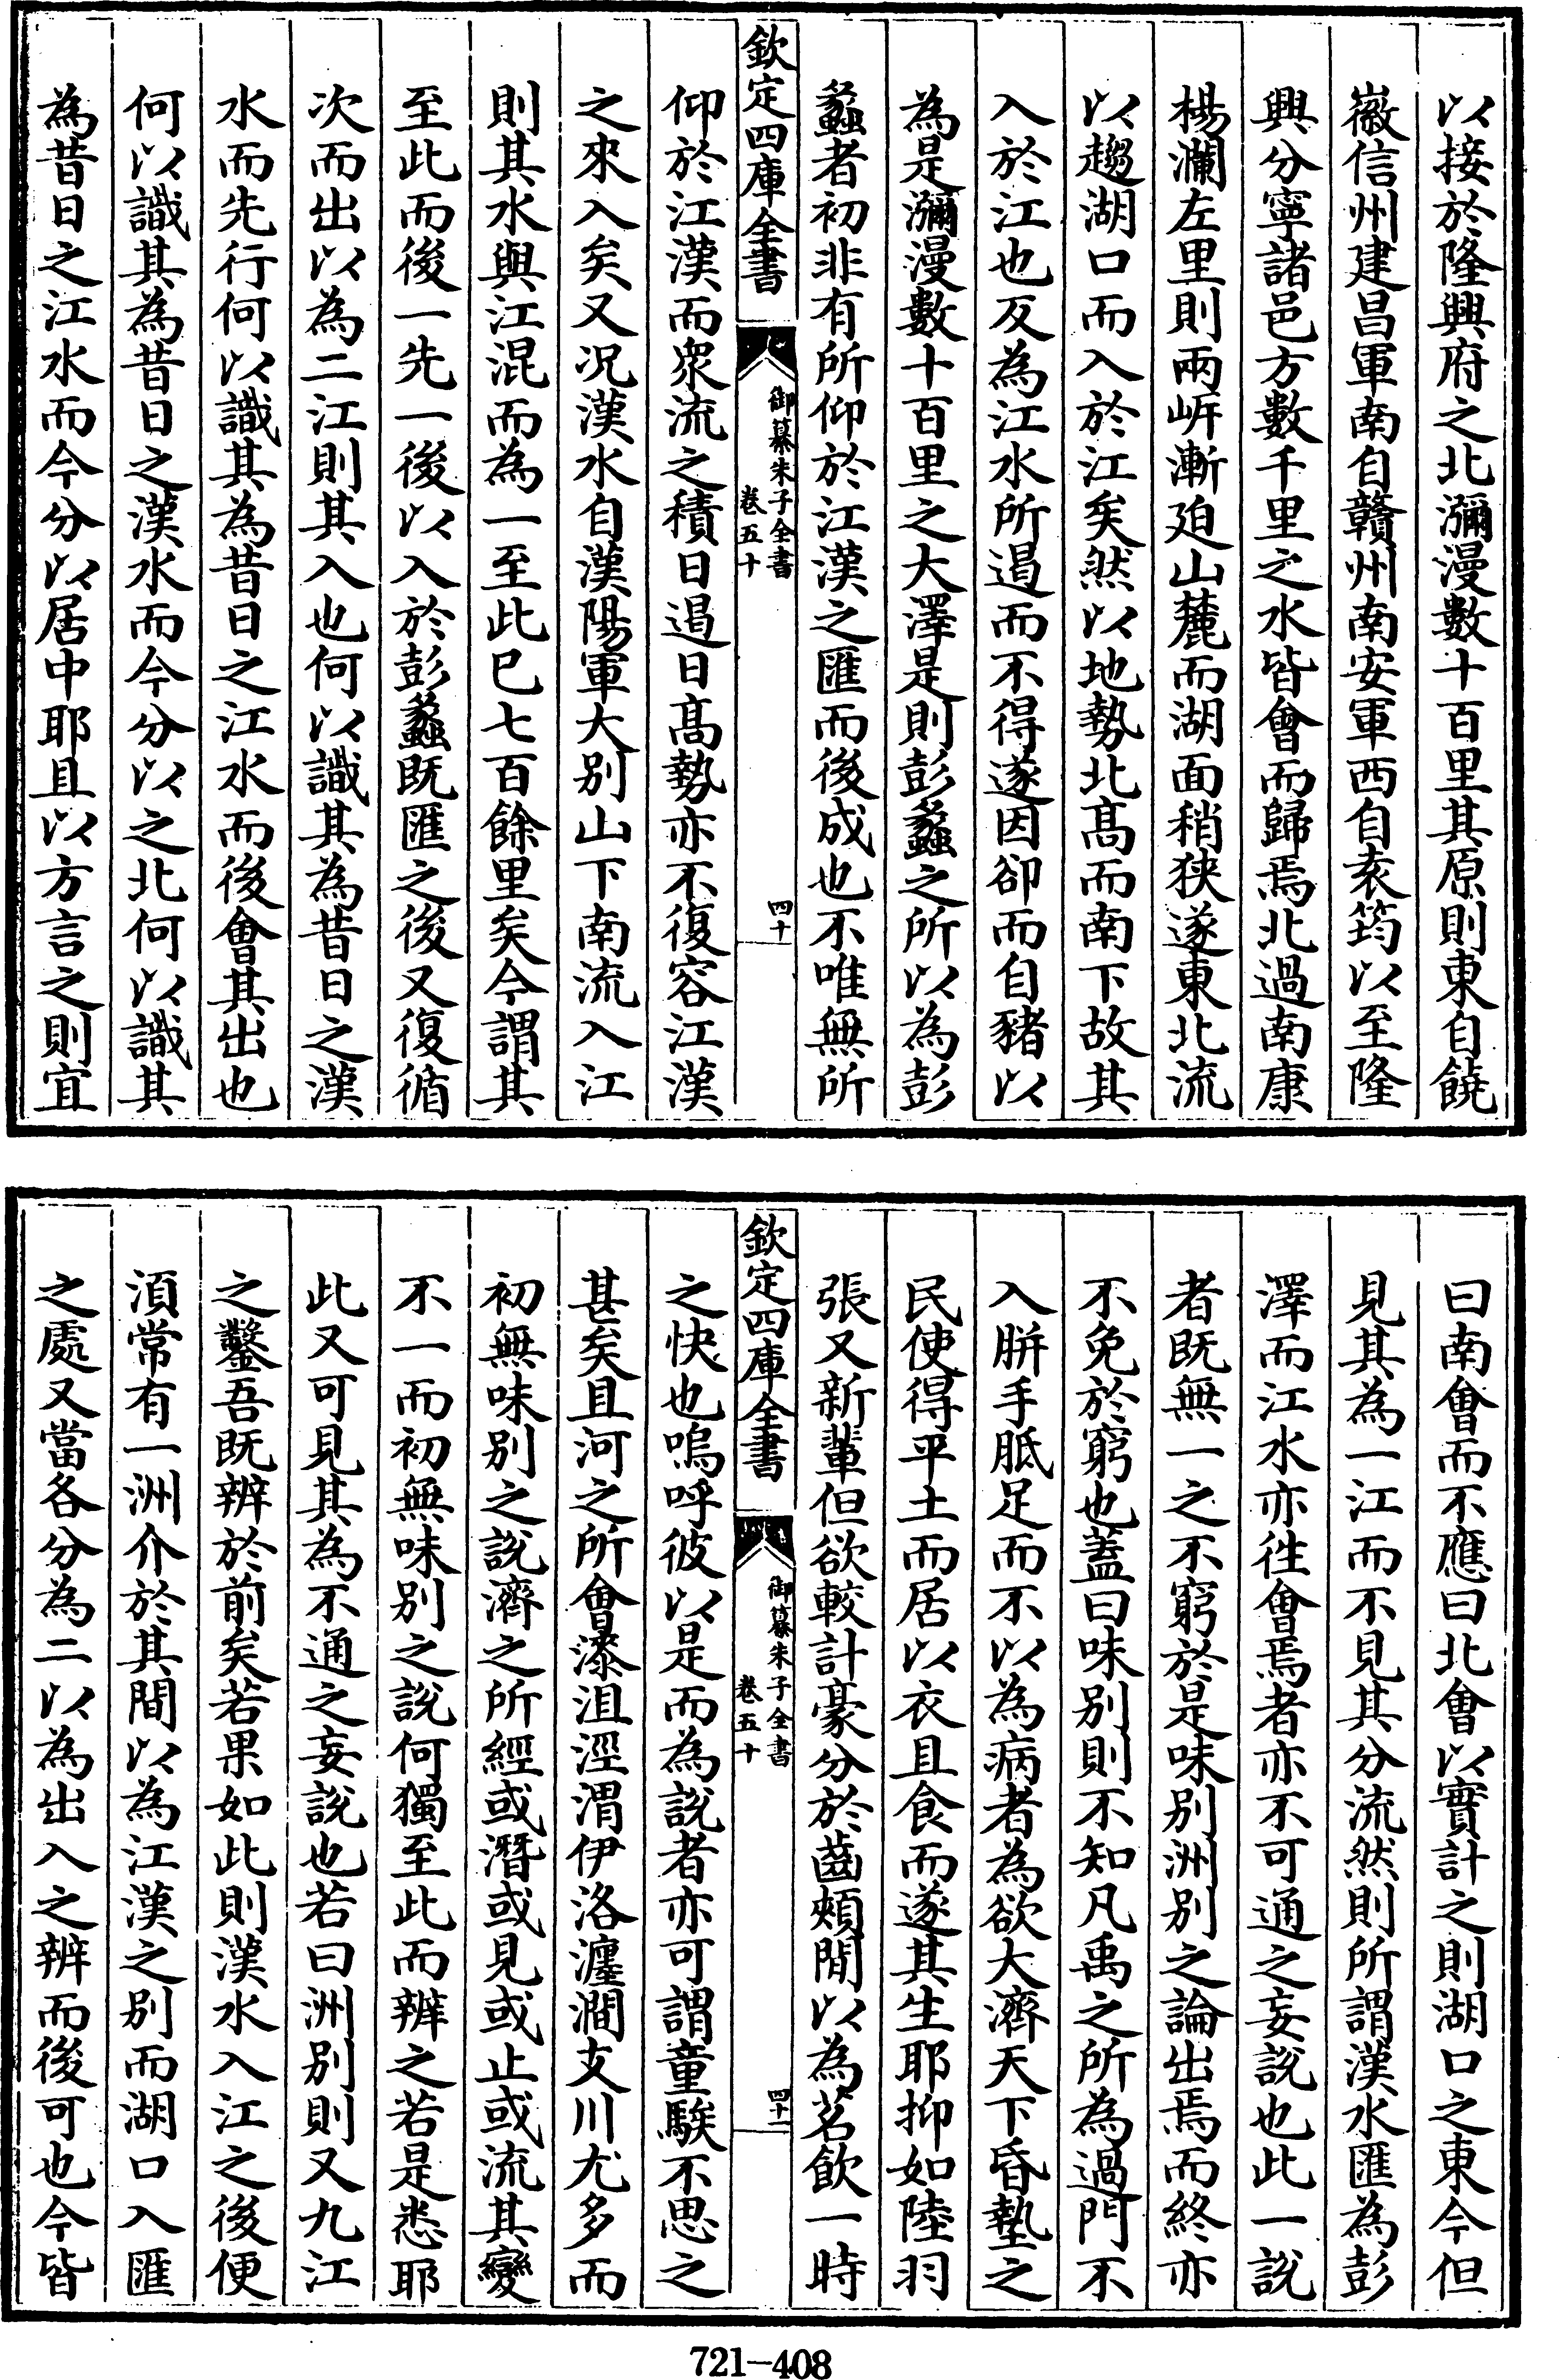 以接於隆興府之北瀰漫數十百里其原則東自饒
徽信州建昌軍南自贛州南安軍西自袁筠以至隆
興分寧諸邑方數千里之水皆會而歸焉北過南康
楊瀾左里則兩岍漸迫山麓而湖面稍狹遂東北流
以趨湖口而入於江矣然以地勢北髙而南下故其
入於江也反為江水所遏而不得遂因卻而自豬以
為是瀰漫數十百里之大澤是則彭蠡之所以為彭
蠡者初非有所仰於江漢之匯而後成也不唯無所
欽定四庫全書
御纂朱子全書
卷五十
四十
仰於江漢而衆流之積日遏日髙勢亦不復容江漢
之來入矣又况漢水自漢陽軍大別山下南流入江
則其水與江混而為一至此已七百餘里矣今謂其
至此而後一先一後以入於彭蠡既匯之後又復循
次而出以為二江則其入也何以識其為昔日之漢
水而先行何以識其為昔日之江水而後會其出也
何以識其為昔日之漢水而今分以之北何以識其
為昔日之江水而今分以居中耶且以方言之則宜
曰南會而不應曰北會以實計之則湖口之東今但
見其為一江而不見其分流然則所謂漢水匯為彭
澤而江水亦徃會焉者亦不可通之妄說也此一說
者既無一之不窮於是味別洲別之論出焉而終亦
不免於窮也蓋曰味別則不知凡禹之所為過門不
入胼手胝足而不以為病者為欲大濟天下昏墊之
民使得平土而居以衣且食而遂其生耶抑如陸羽
張又新輩但欲較計豪分於齒頰間以為茗飲一時
欽定四庫全書
御纂朱子全書
卷五十
四十一
之快也嗚呼彼以是而為說者亦可謂童騃不思之
甚矣且河之所會漆沮涇渭伊洛瀍澗支川尤多而
初無味別之說濟之所經或潛或見或止或流其變
不一而初無味別之說何獨至此而辨之若是悉耶
此又可見其為不通之妄說也若曰洲別則又九江
之鑿吾既辨於前矣若果如此則漢水入江之後便
湏常有一洲介於其間以為江漢之別而湖口入匯
之處又當各分為二以為出入之辨而後可也今皆
721-408